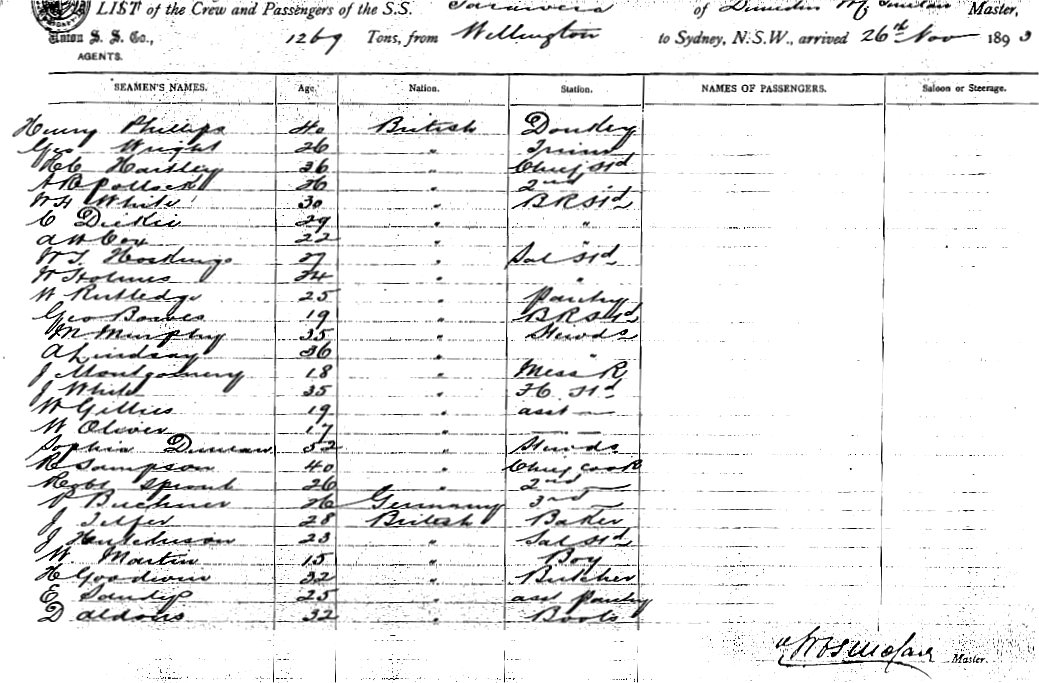 LIST of the Crew and Passengers of the S.S. Tarawera of Dunedin Master,
Union S. S. Co., 1269 Tons, from Wellington to Sydney, N.S.W., arrived 26th Nov 1893
AGENTS.
SEAMEN'S NAMES. Age. Nation. Station. NAMES OF PASSENGERS. Saloon or Steerage.
Henry Phillips 40 British Donkey
Geo Wright 26 " Trimr
Hartley 36 " Chief Std
Pollock 26 " 2nd "
W H White 30 " B R Std
C Dickie 29 " "
A W Cox 22 " "
W J Hoskings 27 " Sal Std
W Holmes 24 " "
W Rutledge 25 " Pantry
Geo Bowes 19 " B R Std
M Murphy 35 " Stewds
A Lindsay 36 " "
J Montgomery 18 " Mess R
J White 35 " F C Std
W Gillies 19 " asst —
W Oliver 17 " —
Sophia Duncan 52 " Stewds
R Sampson 40 " Chief Cook
Robt Sproul 26 " 2nd —
P Buchner 26 Germany 3rd —
J Telfer 28 British Baker
J Hutchison 23 " Sal Std
W Martin 15 " Boy
H Goodwin 32 " Butcher
E 25 " asst Pantry
D Aldous 32 " Boots
Master.